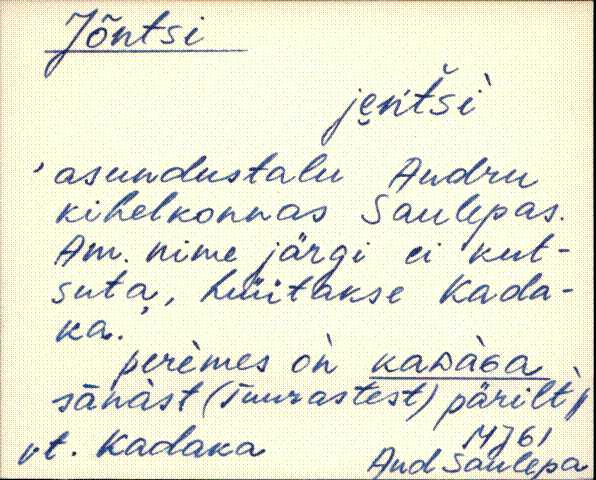 Jõntsi
je̬ńtši
'asundustalu Audru
kihelkonnas Saulepas.
Am. nime järgi ei kut-
suta, hüütakse Kada-
ka.'
perèmes òn kaDàGa
sānàst (Tuurastest) pärilt,
vt. Kadaka
MJ61
Aud Saulepa